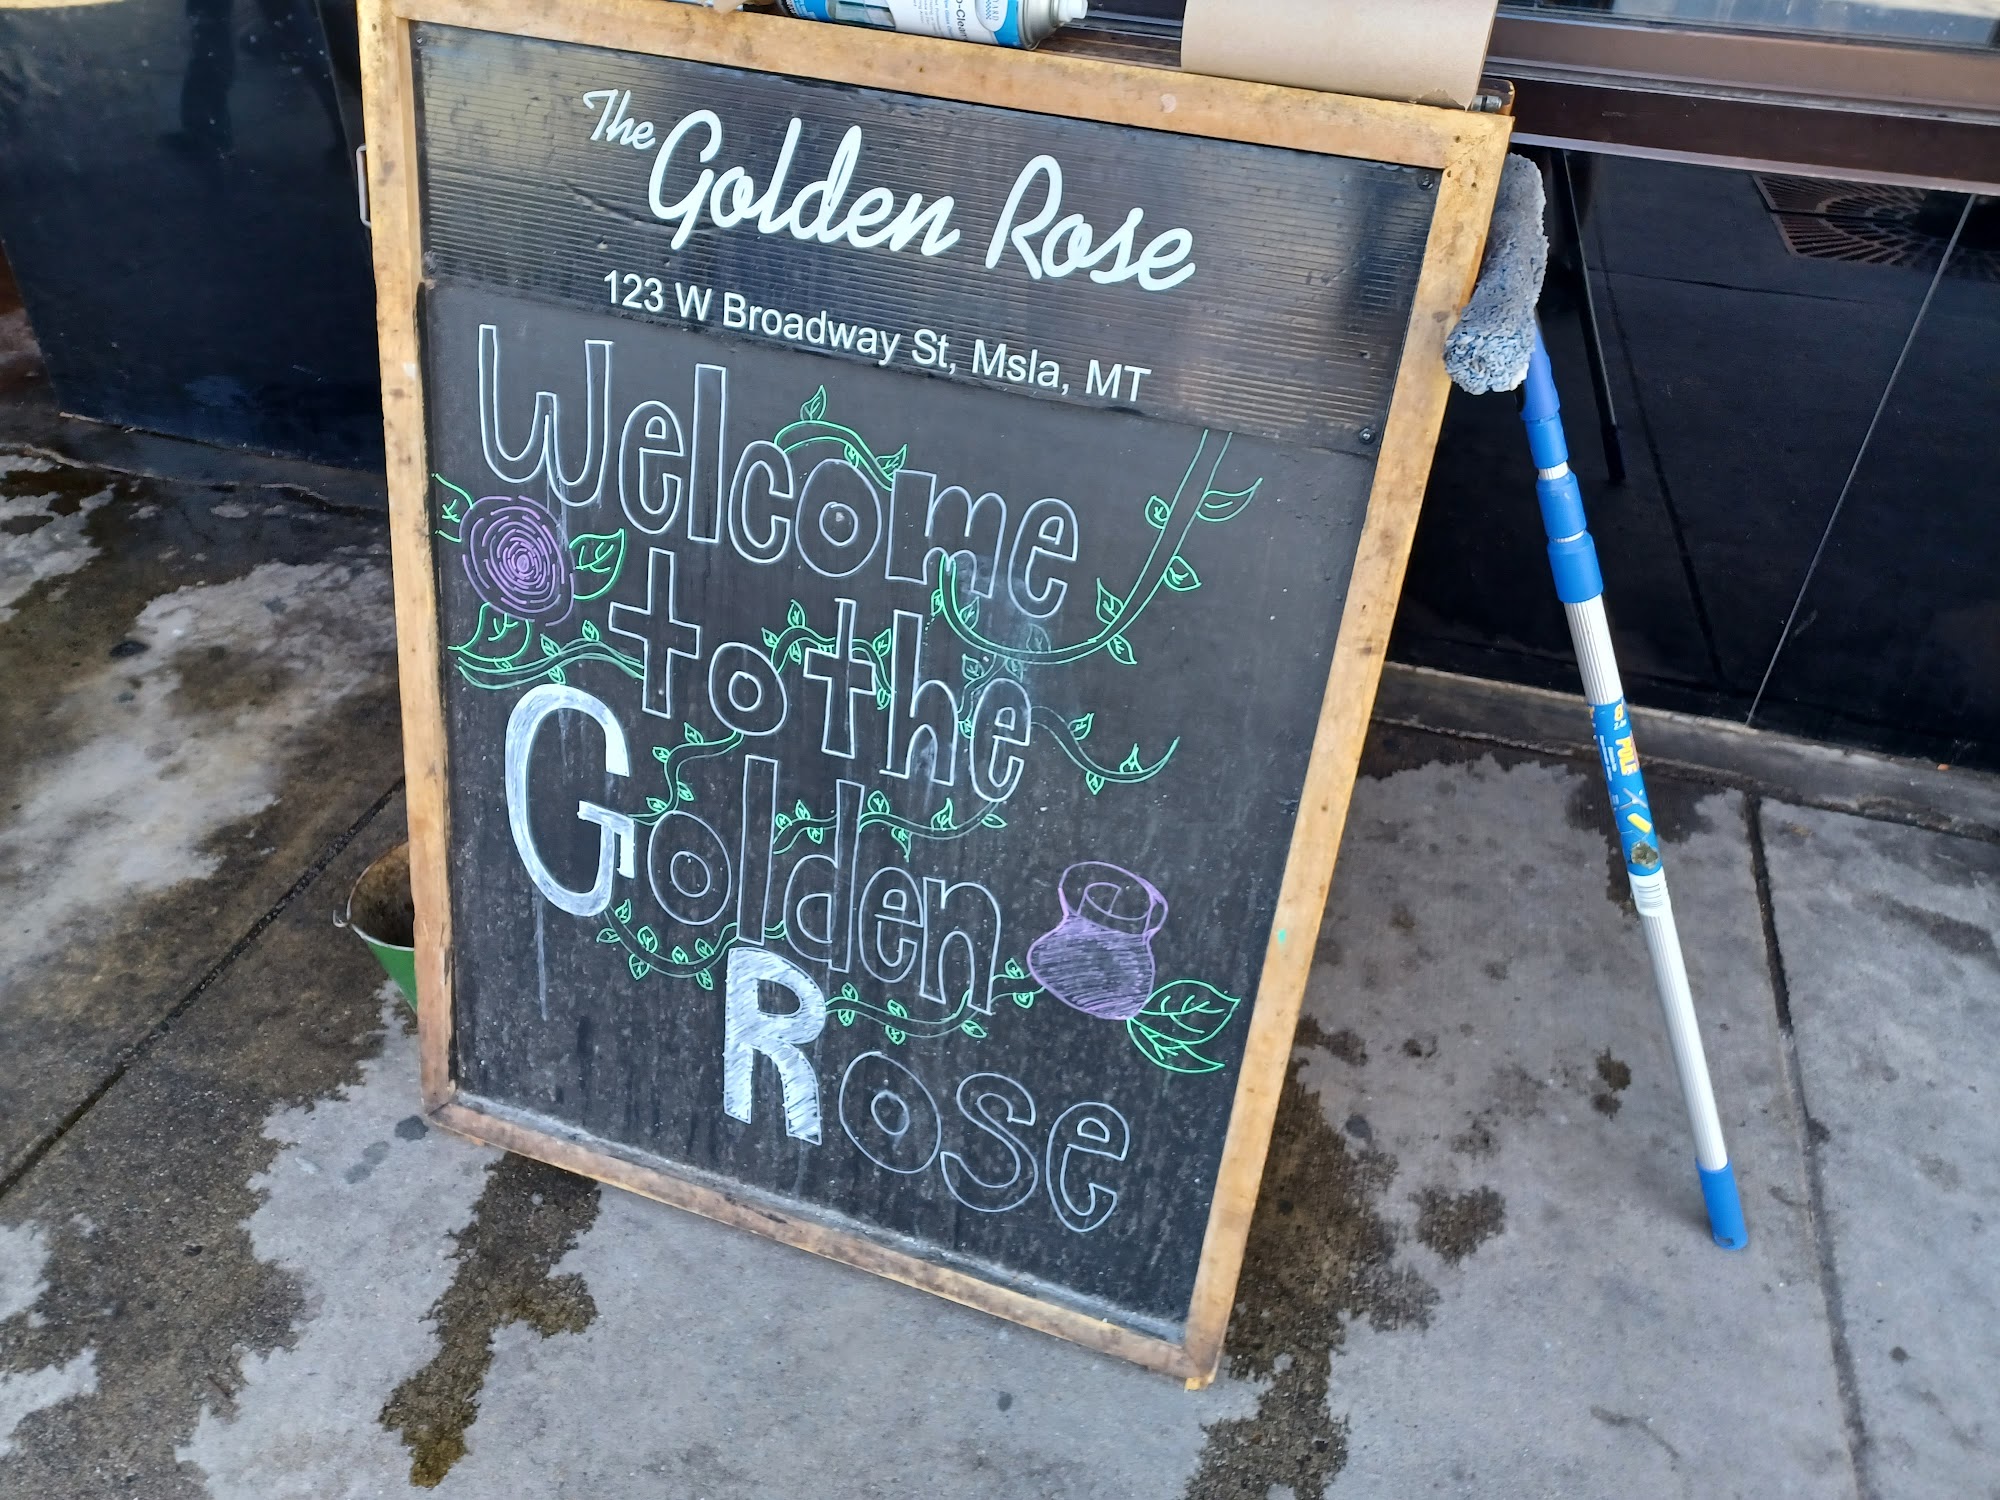 The Golden Rose
123 W Broadway St, Msla, MT
Welcome
to the
Golden
Rose
POLE